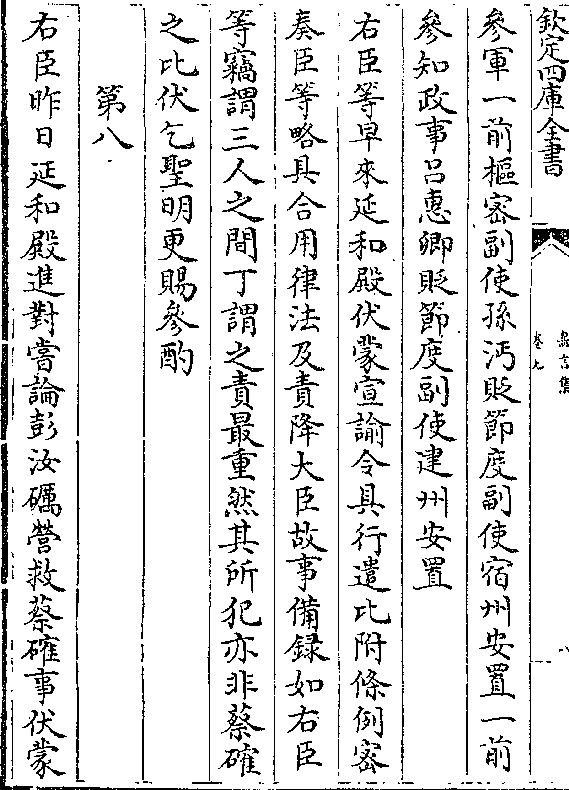 欽定四庫全書
盡言集
卷九
參軍一前樞密副使孫沔貶節度副使宿州安置一前
參知政事呂惠卿貶節度副使建州安置
右臣等早來延和殿伏蒙宣諭令具行遣比附條例密
奏臣等略具合用律法及責降大臣故事備録如右臣
等竊謂三人之間丁謂之責最重然其所犯亦非蔡確
之比伏乞聖明更賜參酌
第八
右臣昨日延和殿進對嘗論彭汝礪營救蔡確事伏蒙